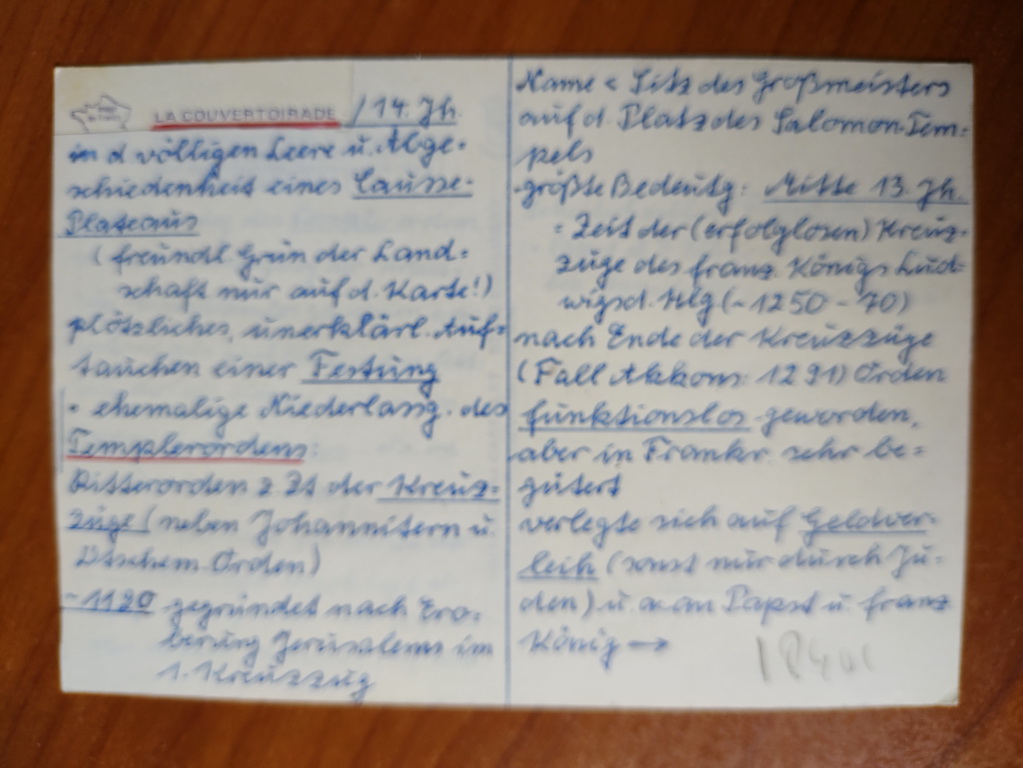 LA COUVERTOIRADE / 14. Jh.
in d völligen Leere u. Abge-
schiedenheit eines Causse-
Plateaus
(freundl Grün der Land-
schaft nur auf d. Karte!)
plötzliches, unerklärl. Auf-
tauchen einer Festung
• ehemalige Niederlassg. des
Templerordens:
Ritterorden z Zt der Kreuz-
züge (neben Johannitern u.
Dtschem Orden)
~1120 gegründet nach Ero-
berung Jerusalems im
1. Kreuzzug
Name < Sitz des Großmeisters
auf d. Platz des Salomon-Tem-
pels
größte Bedeutg: Mitte 13. Jh.
= Zeit der (erfolglosen) Kreuz-
züge des franz. Königs Lud-
wigs d. Hlg (~1250-70)
nach Ende der Kreuzzüge
(Fall Akkons 1291) Orden
funktionslos geworden,
aber in Frankr. sehr be-
gütert
verlegte sich auf Geldver-
leih (sonst nur durch Ju-
den) u. a. an Papst u. franz
König →